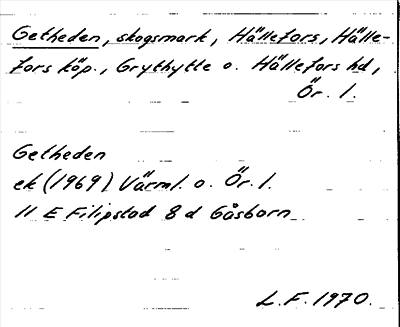 Getheden, skogsmark, Hällefors, Hälle-
fors köp., Grythytte o. Hällefors hd,
Ör. l.
Getheden
ek (1969) Värml. o. Ör. l.
11 E Filipstad 8 d Gåsborn
L.F. 1970.